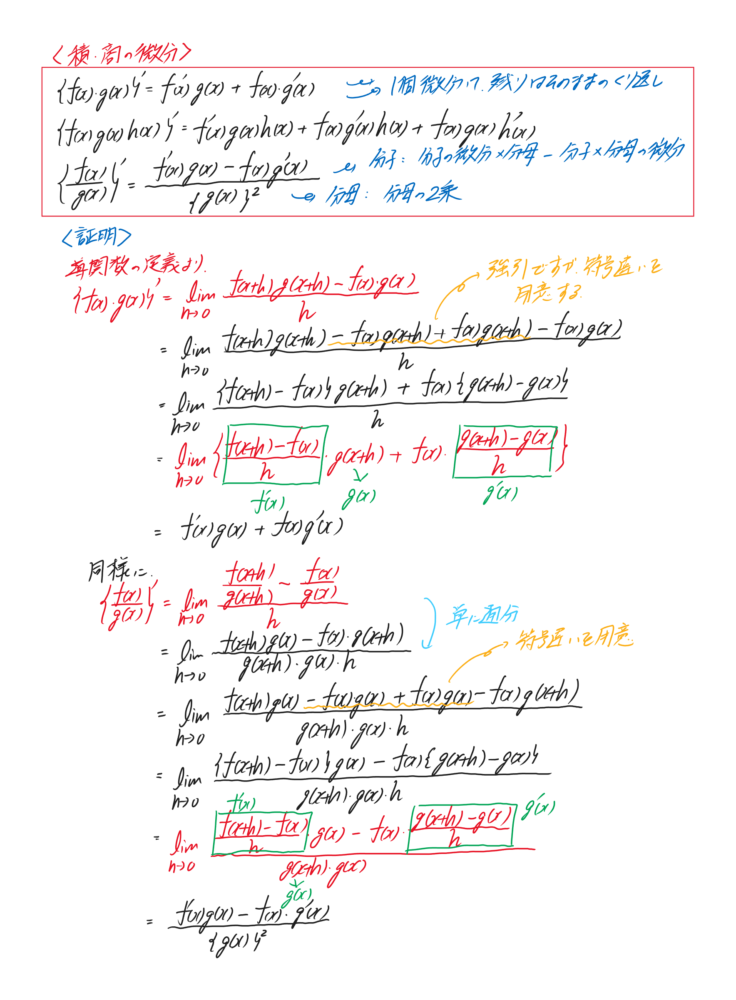 〈積・商の微分〉
{f(x)・g(x)}' = f'(x)g(x) + f(x)・g'(x) 1個微分して、残りはそのままのくり返し
{f(x)g(x)h(x)}' = f'(x)g(x)h(x) + f(x)g'(x)h(x) + f(x)g(x)h'(x)
{f(x)/g(x)}' = (f'(x)g(x) - f(x)g'(x))/{g(x)}² 分子: 分子の微分×分母 - 分子×分母の微分
分母: 分母の2乗
〈証明〉
導関数の定義より、
{f(x)・g(x)}' = lim h→0 (f(x+h)g(x+h) - f(x)・g(x))/h 強引ですが、符号違いを
用意する
= lim h→0 (f(x+h)g(x+h) - f(x)g(x+h) + f(x)g(x+h) - f(x)g(x))/h
= lim h→0 ({f(x+h) - f(x)}g(x+h) + f(x){g(x+h) - g(x)})/h
= lim h→0 {(f(x+h) - f(x))/h・g(x+h) + f(x)・(g(x+h) - g(x))/h}
f'(x) g(x) g'(x)
= f'(x)g(x) + f(x)g'(x)
同様に、
{f(x)/g(x)}' = lim h→0 (f(x+h)/g(x+h) - f(x)/g(x))/h
単に通分
= lim h→0 (f(x+h)g(x) - f(x)・g(x+h))/(g(x+h)・g(x)・h) 符号違いを用意
= lim h→0 (f(x+h)g(x) - f(x)g(x) + f(x)g(x) - f(x)g(x+h))/(g(x+h)・g(x)・h)
= lim h→0 ({f(x+h) - f(x)}g(x) - f(x){g(x+h) - g(x)})/(g(x+h)・g(x)・h)
f'(x) g'(x)
= lim h→0 ((f(x+h) - f(x))/h g(x) - f(x)・(g(x+h) - g(x))/h)/(g(x+h)・g(x))
g(x)
= (f'(x)g(x) - f(x)・g'(x))/{g(x)}²